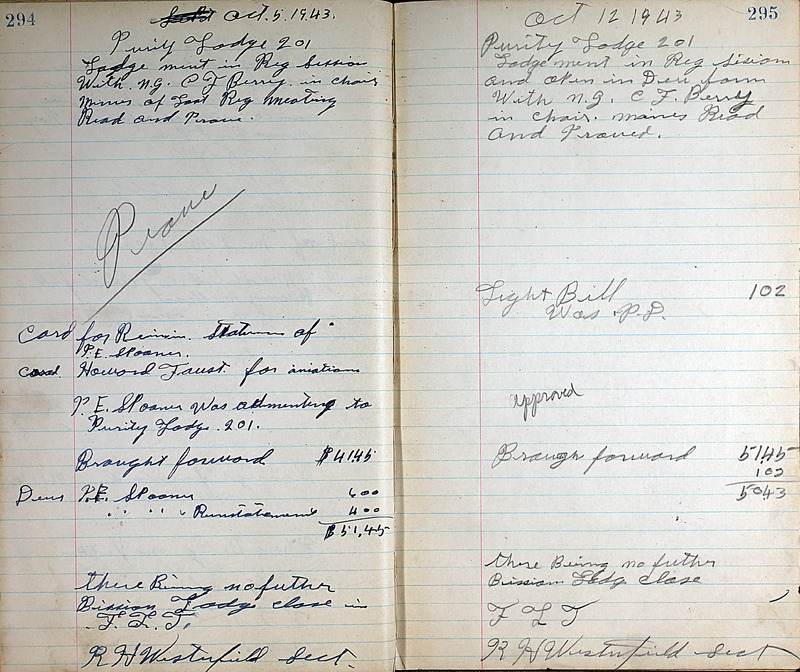 294
Oct. 5. 1943.
Purity Lodge 201
Lodge ment in Reg Session
With N.G. C F Berry. in Chair
minies of Last Reg meeting
Read and Prove.
Prove
Card for Reinin. Statians of
P.E. Slooner.
Card. Howard Faust. for aniations
P. E. Slooner Was admenting to
Purity Lodge. 201.
Brought forward $4145
Dues P.E. Slooner 600
" " " " Reinstatement 400
$51,45
there Being no futher
Bission Lodge close in
F. L. T.
R H Westerfield Sect.
295
Oct 12 1943
Purity Lodge 201
Lodge ment in Reg Sision
and open in Due form
With N.G. C F. Berry
in Chair. manes Read
and Proved.
Light Bill 102
Was P.D.
approved
Brough forward 5145
102
5043
there Being no futher
Bission Lodg close
F L T
R H Westerfield Sect